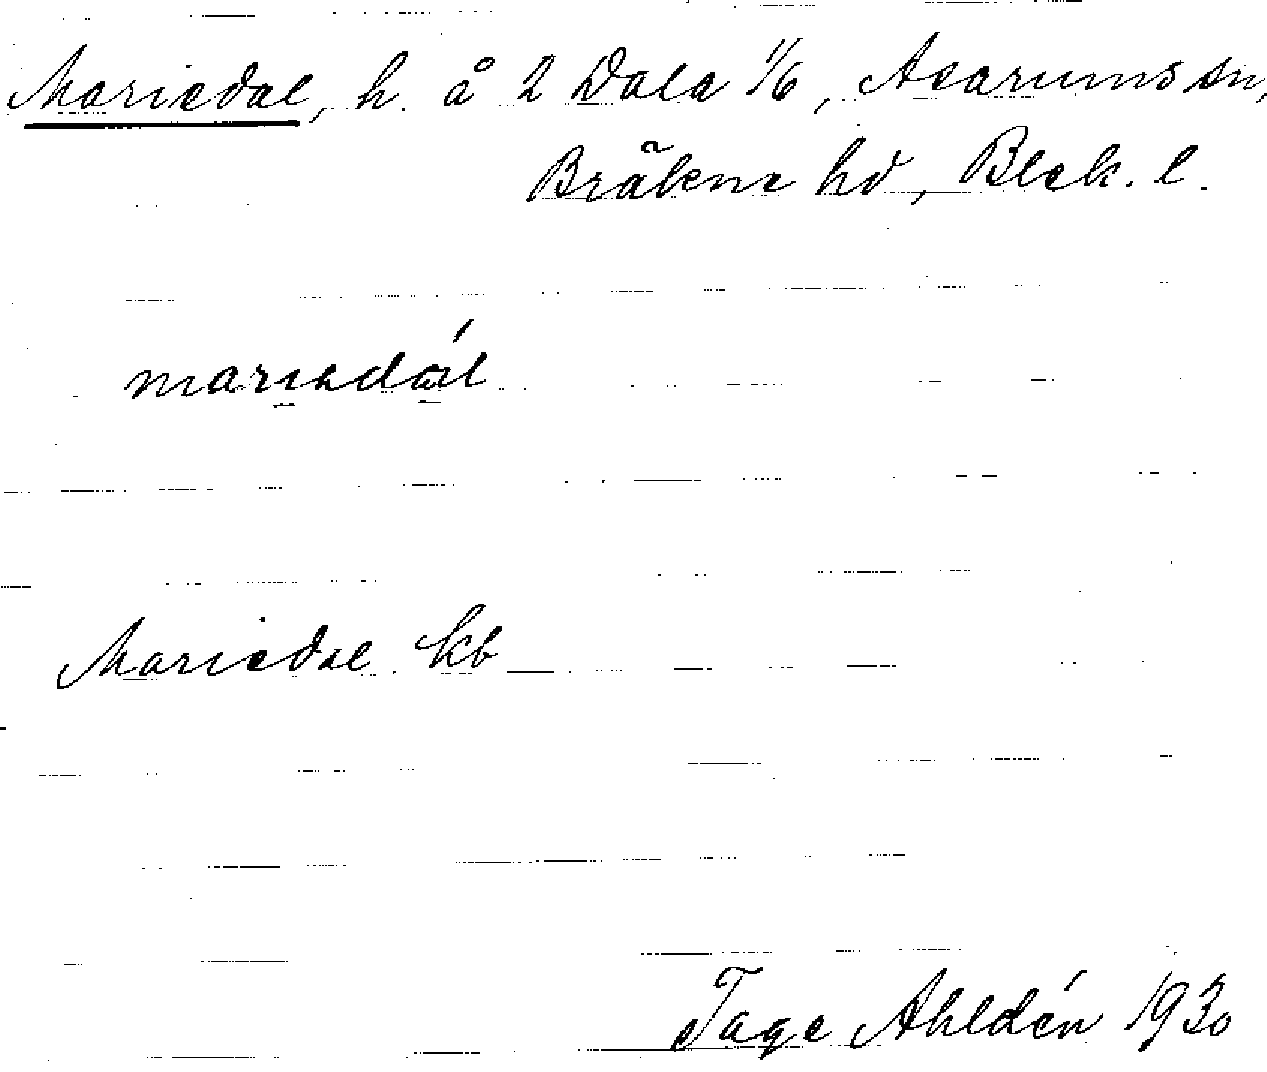 Mariedal, h. å 2 Dala 1/6, Asarums sn,
Bräkne hd, Blek. l.
mariadál
Mariedal kb
Tage Ahldén 1930